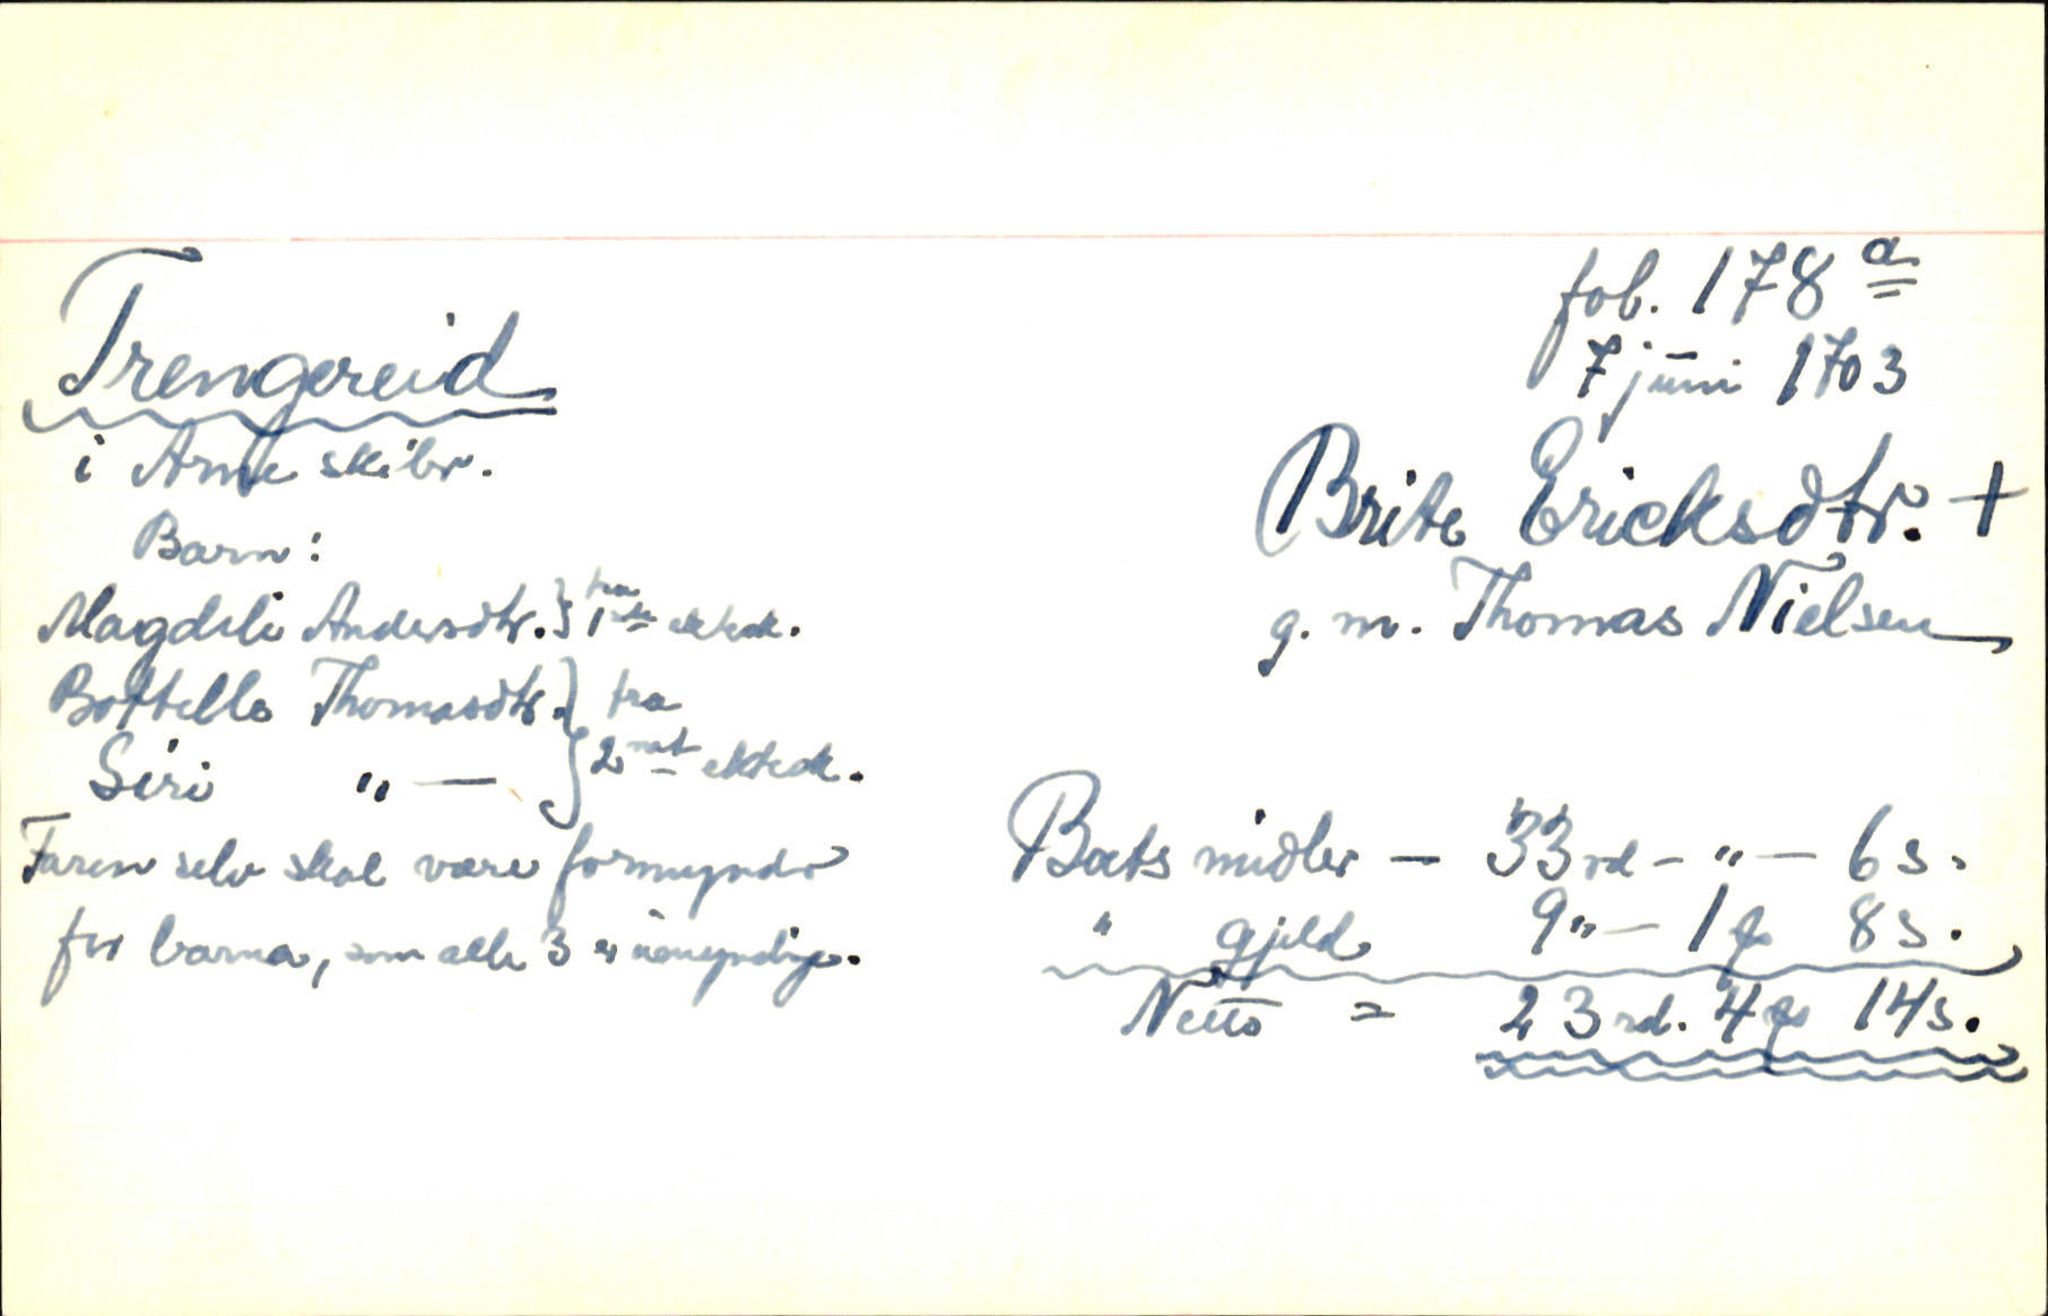 fol. 178 a
7 juni 1703
Trengereid
i Arne skibr.
Brite Ericksdtr. +
g. m. Thomas Nielsen
Barn:
Magdeli Andersdtr. } fra 1ste ektesk.
Bottelle Thomasdtr. } fra
Siri " — } 2net ektesk.
Faren selv skal være formynder
for barna, som alle 3 er umyndige.
Boets midler — 33 rd - " — 6 s.
" gjeld 9 " — 1 8 s.
Netto = 23 rd. 4 14 s.